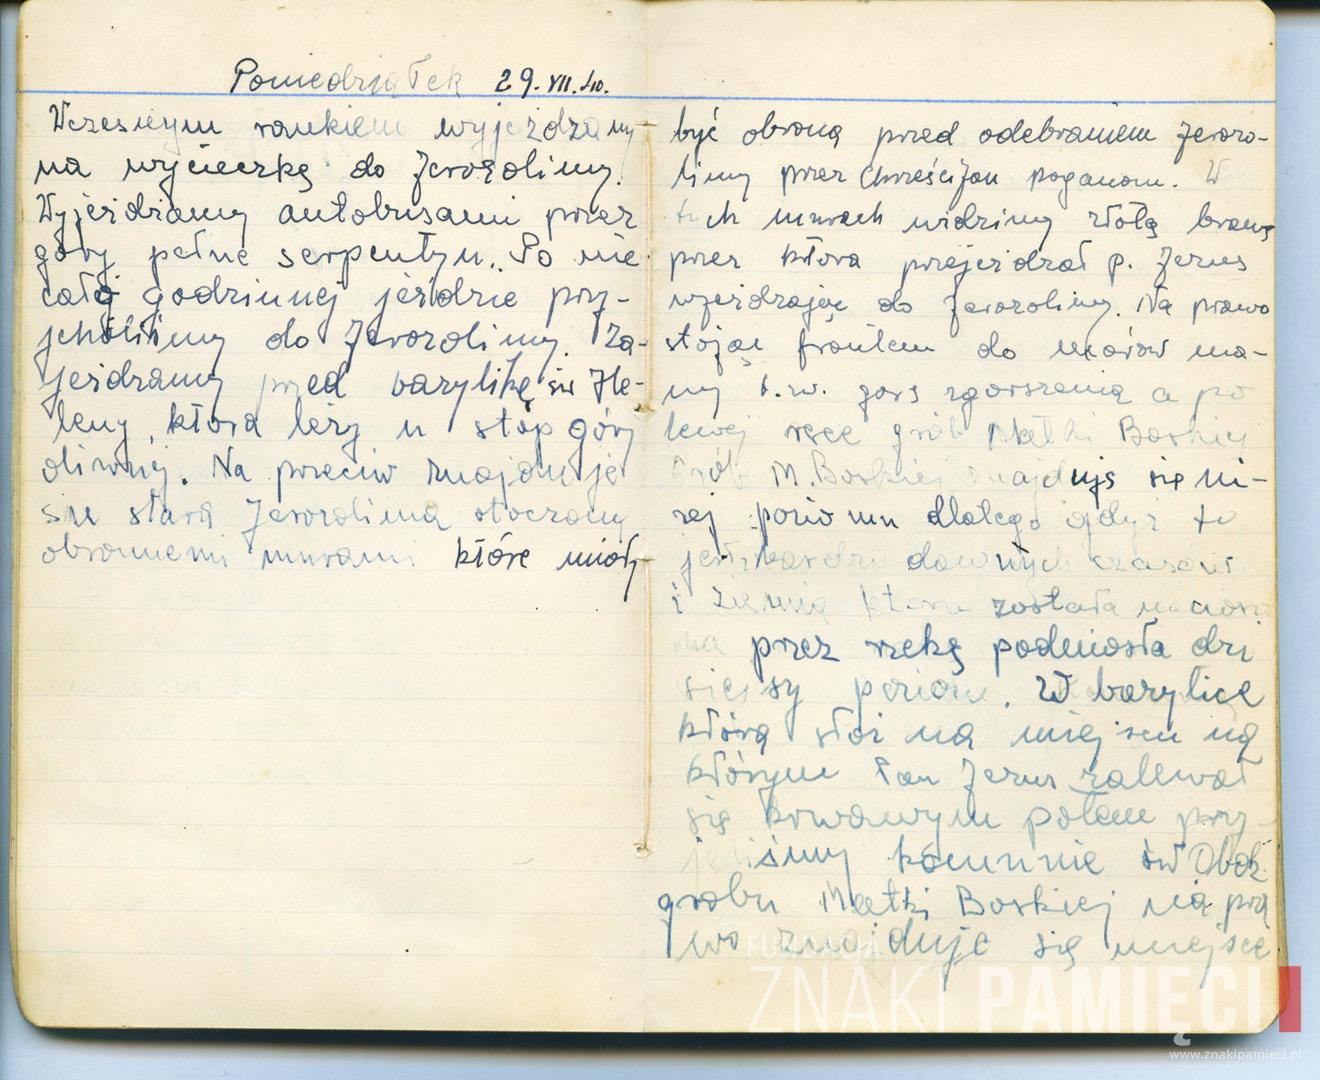 Poniedziałek 29.VII.40.
Wczesnym rankiem wyjeżdżamy
na wycieczkę do Jerozolimy.
Wyjeżdżamy autobusami przez
góry pełne serpentyn. Po nie
całej godzinnej jeździe przy-
jchaliśmy do Jerozolimy. Za-
jeżdżamy przed bazylikę św He-
leny, która leży u stóp góry
oliwnej. Na przeciw znajduje
się stara Jerozolima otoczona
obronnemi murami które miały
być obroną przed odebraniem Jerozo-
limy przez Chrześcijan poganom. W
tych murach widzimy złotą bramę
przez która przejeżdżał p. Jezus
wjeżdżając do Jerozolimy. Na prawo
stojąc frontem do murów ma-
my t.zw. górę zgorszenia a po
lewej ręce grób Matki Boskiej
Grób M. Boskiej znajduje się ni-
żej poziomu dlatego gdyż to
jest bardzo dawnych czasów
i ziemia która została nanoszo
na przez rzekę podniosła dzi
siejszy poziom. W bazylice
która stoi na miejscu na
którym Pan Jezus zalewał
się krwawym potem przy-
jeliśmy komunnie św Obok
grobu Matki Boskiej na pra
wo znajduje się miejsce
FUNDACJA
ZNAKI PAMIĘCI
www.znakipamieci.pl